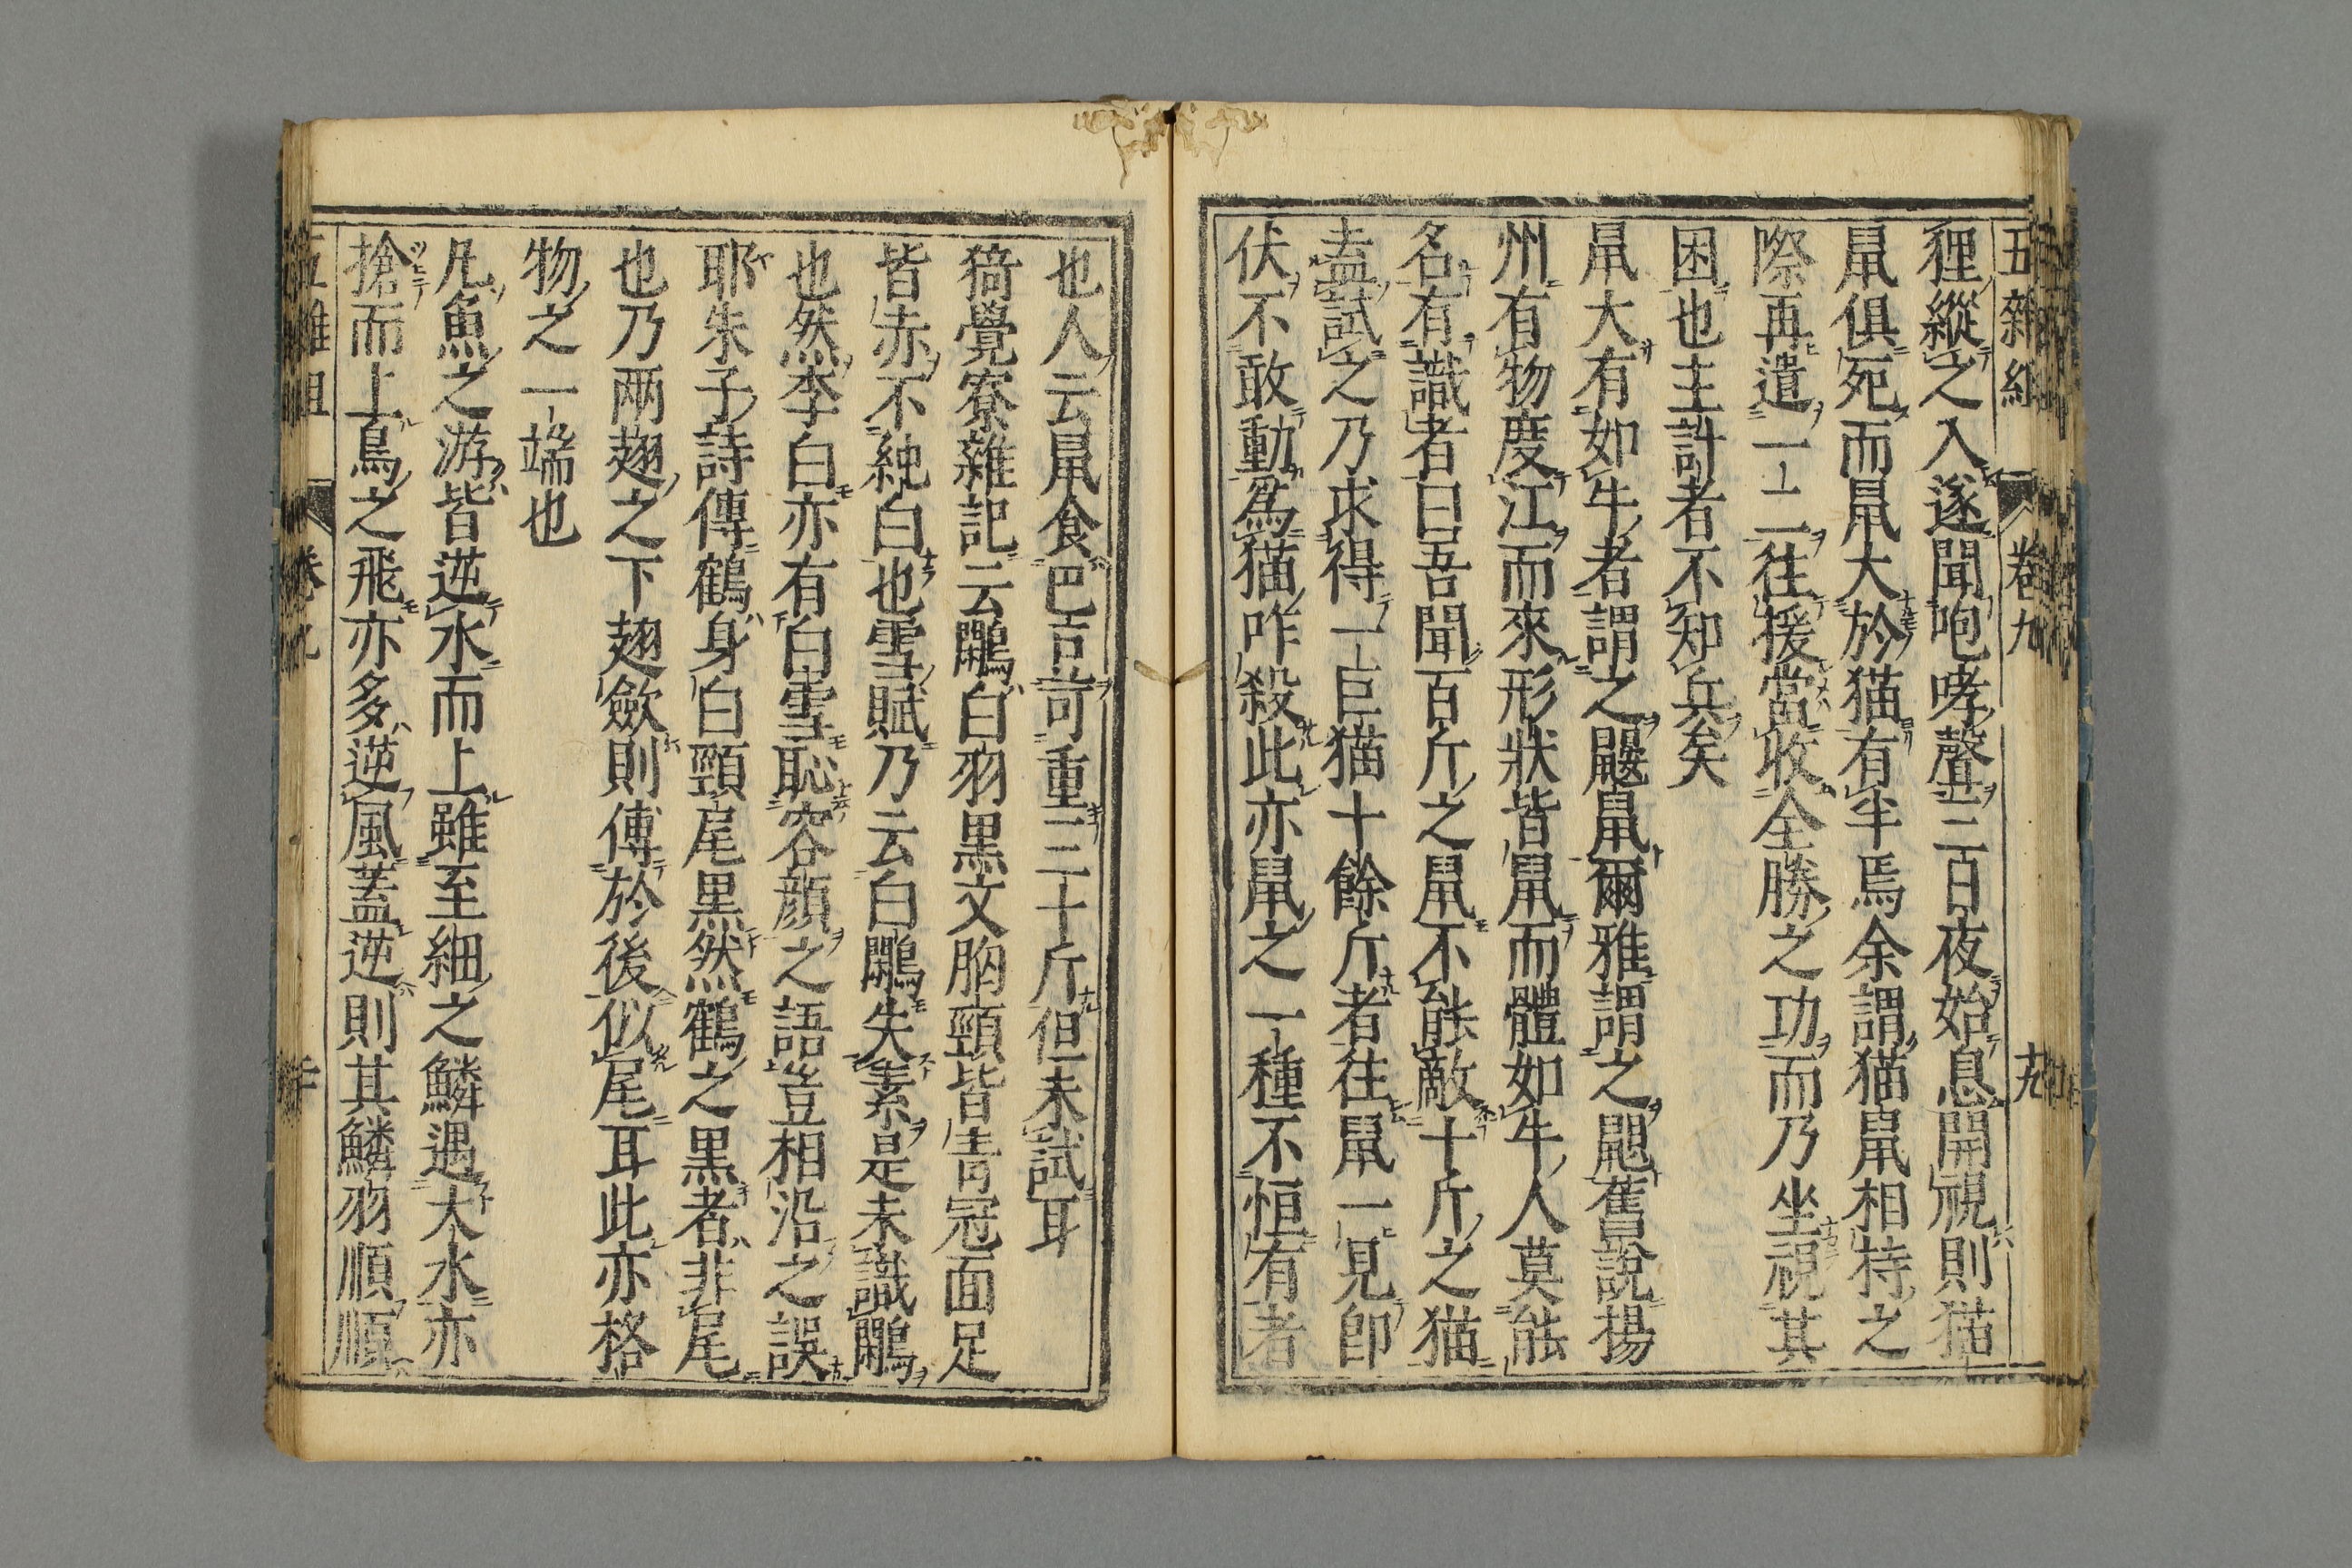 五雜組 卷九 十九
狸縱之入遂聞咆哮聲三日夜始息開視則猫
鼠俱死而鼠大於猫有半焉余謂猫鼠相持之
際再遣一二往援當收全勝之功而乃坐視其
困也主計者不知兵矣
鼠大有如牛者謂之鼴鼠爾雅謂之鼳舊說揚
州有物度江而來形狀皆鼠而體如牛人莫能
名有識者曰吾聞百斤之鼠不能敵十斤之猫
盍試之乃求得一巨猫十餘斤者往鼠一見卽
伏不敢動爲猫咋殺此亦鼠之一種不恒有者
也人云鼠食巴豆可重三十斤但未試耳
猗覺寮雜記云鷴白羽黑文胸頸皆青冠面足
皆赤不純白也雪賦乃云白鷴失素是未識鷴
也然李白亦有白雪恥容顏之語豈相沿之誤
耶朱子詩傳鶴身白頸尾黑然鶴之黑者非尾
也乃兩翅之下翅斂則傅於後似尾耳此亦格
物之一端也
凡魚之游皆逆水而上雖至細之鱗遇大水亦
搶而上鳥之飛亦多逆風蓋逆則其鱗羽順順
五雜組 卷九 二十